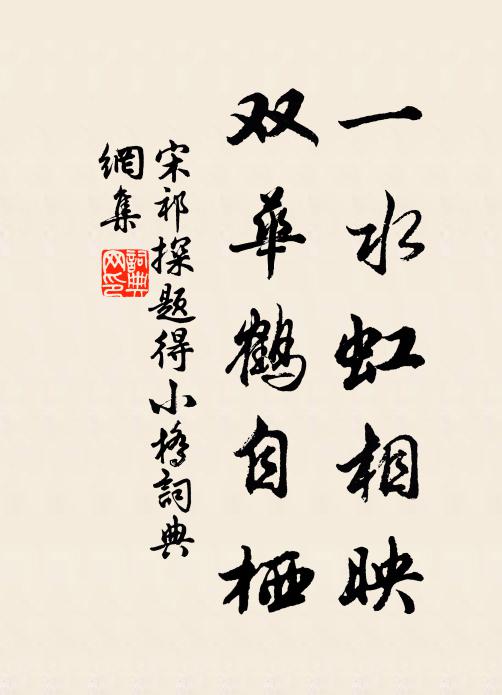 一水虹相映
双华鹤自栖
宋祁探题得小桥詞典
網集
詞典
网印